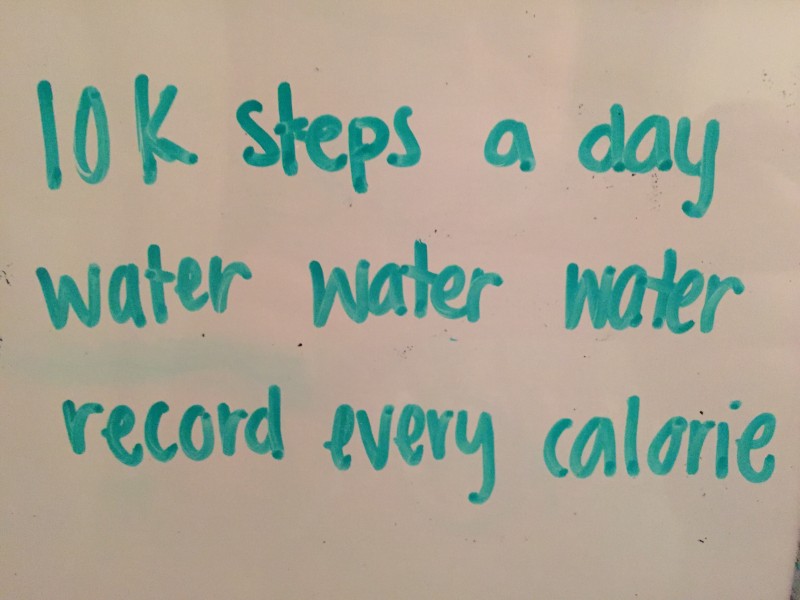 10K steps a day
water water water
record every calorie